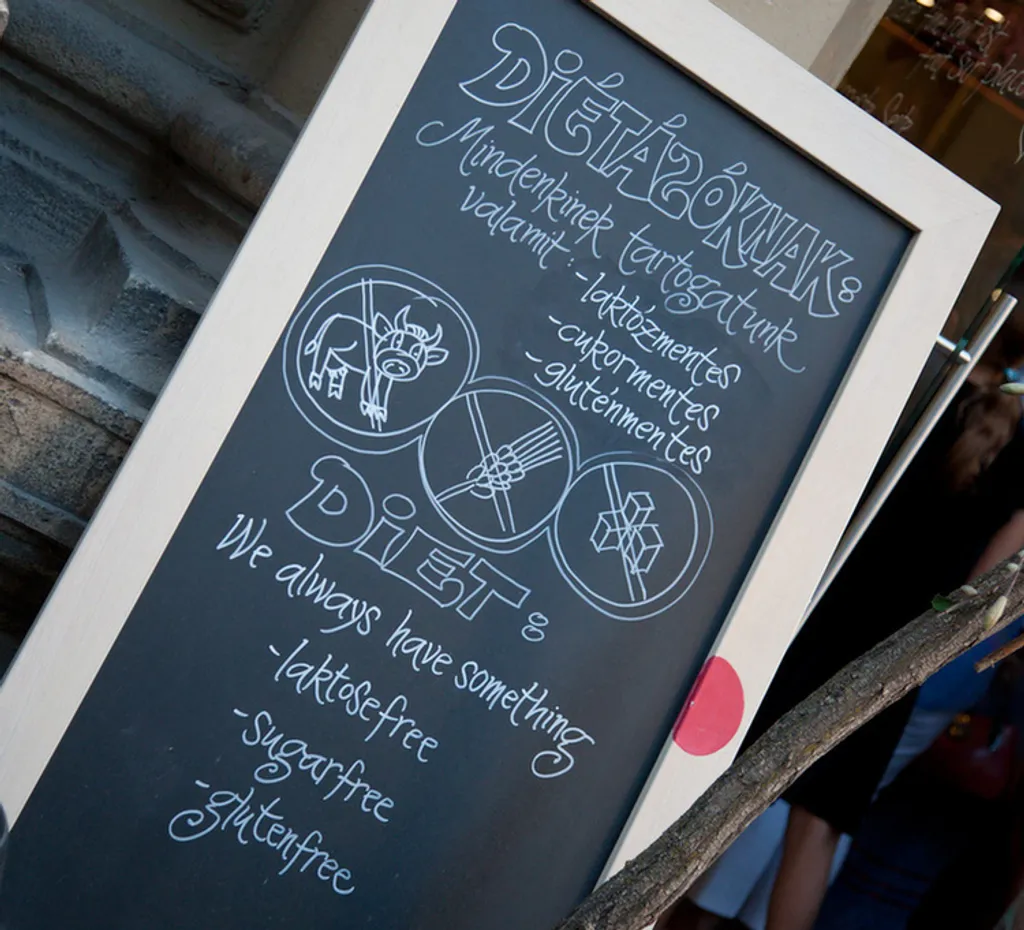 DIÉTÁZÓKNAK:
Mindenkinek tartogatunk
valamit:
-laktózmentes
-cukormentes
-gluténmentes
DIET:
We always have something
-laktosefree
-sugarfree
-glutenfree